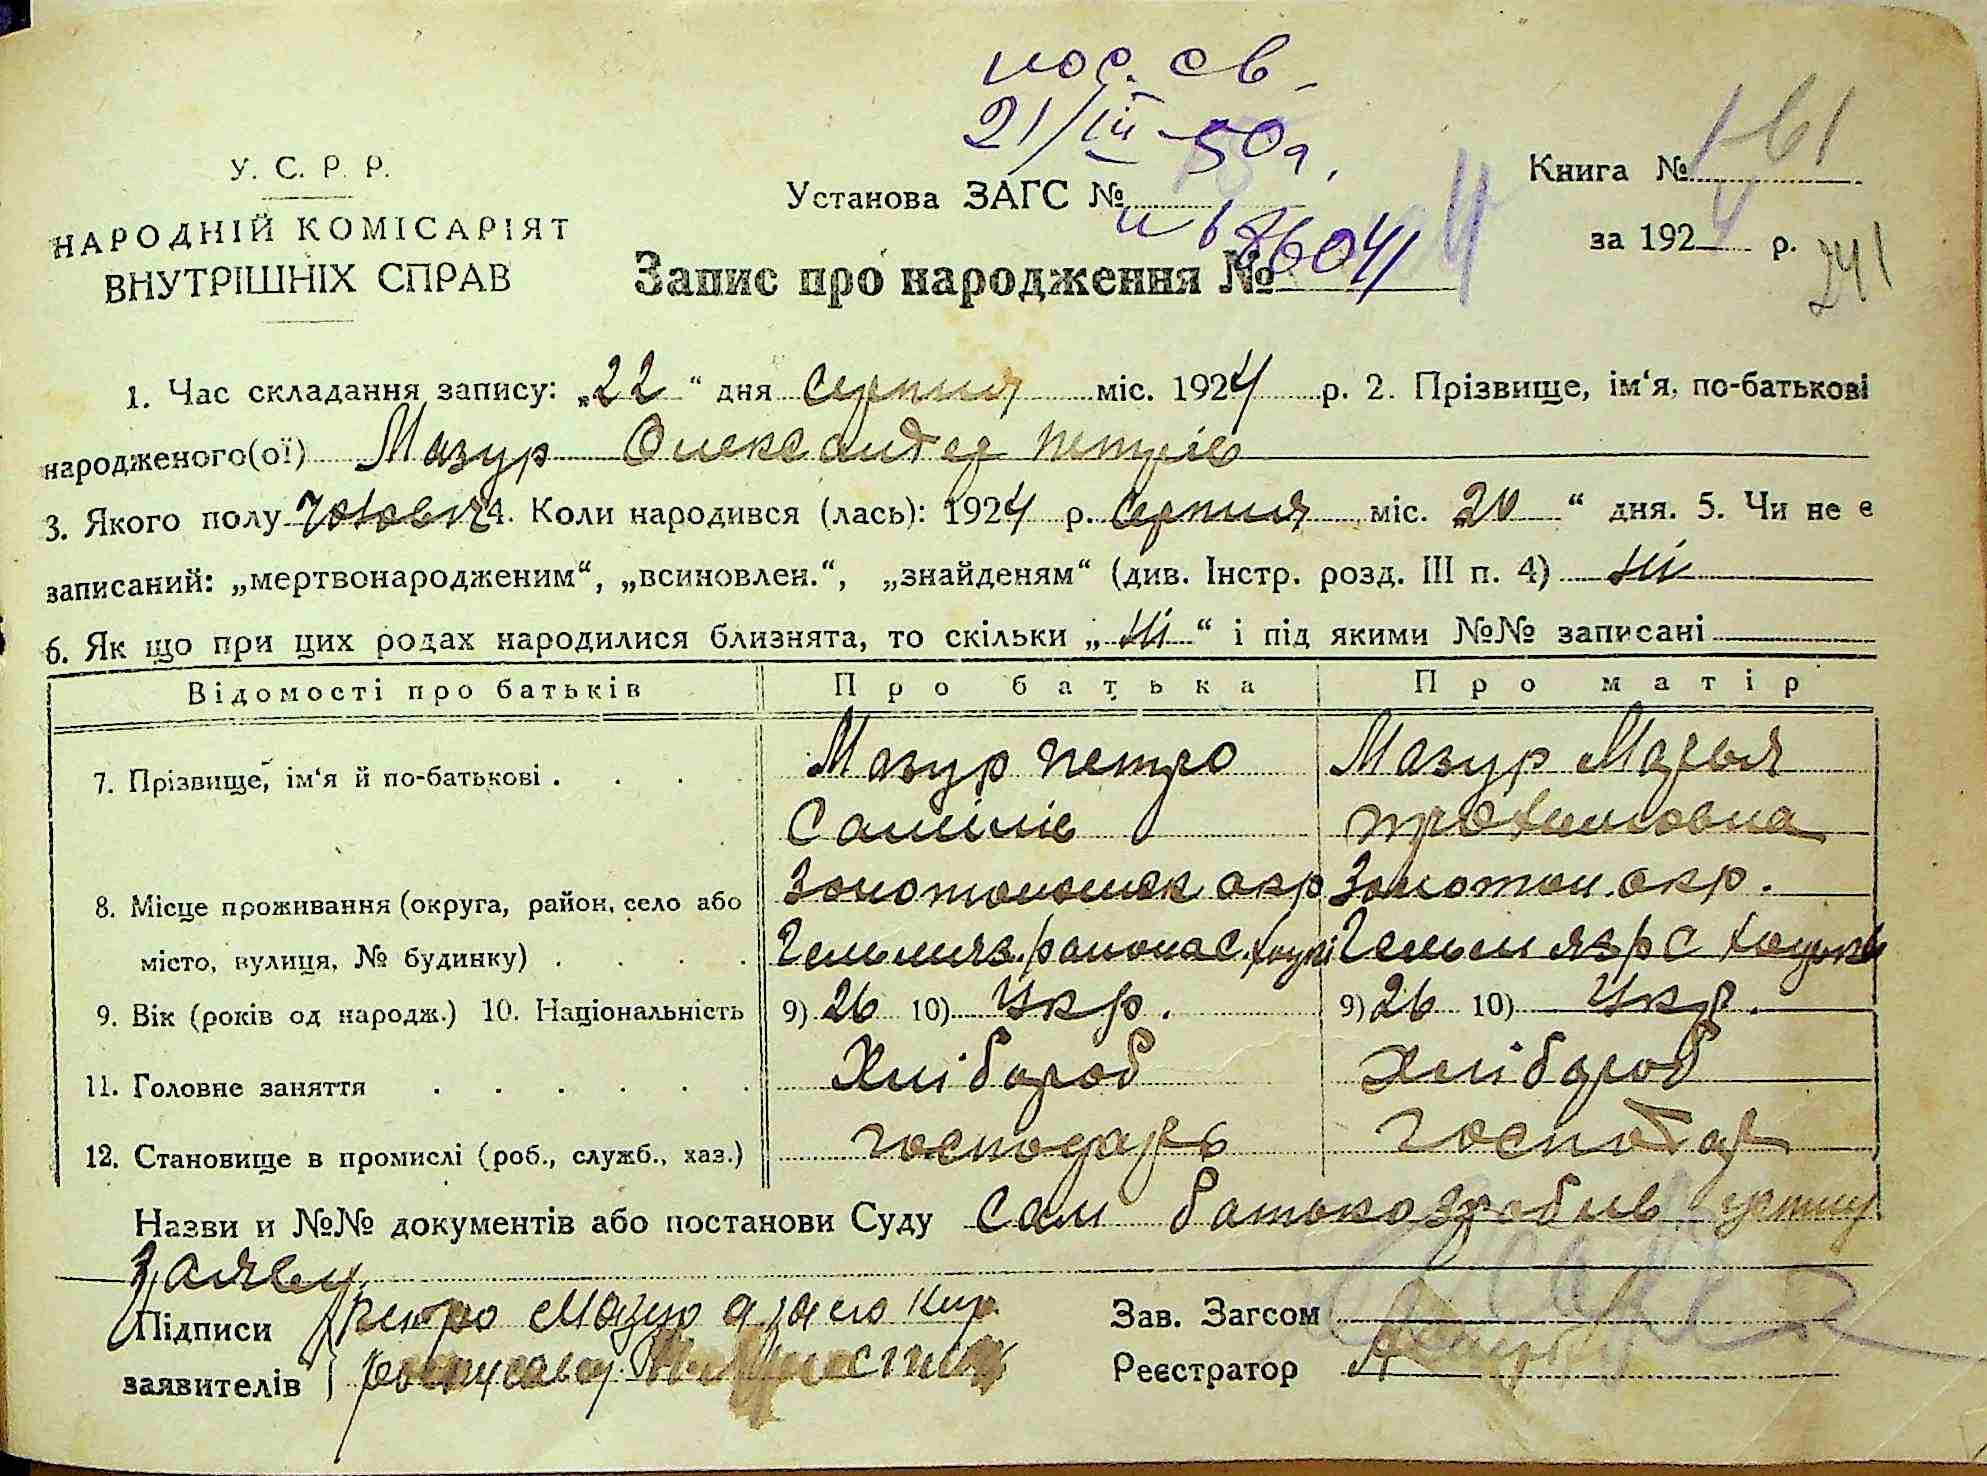 пос. св.
21/III-50 г.
У. С. Р. Р.
НАРОДНІЙ КОМІСАРІЯТ
ВНУТРІШНІХ СПРАВ
Установа ЗАГС №
Книга №
за 192 р.
241
Запис про народження №
1. Час складання запису: „22“ дня серпня міс. 1924 р. 2. Прізвище, ім‘я, по-батькові
народженого(ої) Мазур Олександер Петрів
3. Якого полу чоловіч 4. Коли народився (лась): 1924 р. серпня міс. 20 “ дня. 5. Чи не є
записаний: „мертвонародженим“, „всиновлен.“, „знайденям“ (див. Інстр. розд. III п. 4) ні
6. Як що при цих родах народилися близнята, то скільки „ ні “ і під якими №№ записані
Відомості про батьків Про батька Про матір
7. Прізвище, ім‘я й по-батькові . . . . Мазур Петро Мазур Марья
Трохимовна
8. Місце проживання (округа, район, село або Золотоношск окр Золотон. окр.
місто, вулиця, № будинку) . . . . Гельмяз. района с. Гельмяз р с Хоцьки
9. Вік (років од народж.) 10. Національність 9) 26 10) Укр. 9) 26 10) Укр.
11. Головне заняття . . . . . . Хлібороб Хлібороб
12. Становище в промислі (роб., служб., хаз.) господарь господар
Назви и №№ документів або постанови Суду Сам батько зробив
заяву
Підписи Петро Мазур
заявителів
Зав. Загсом
Реєстратор